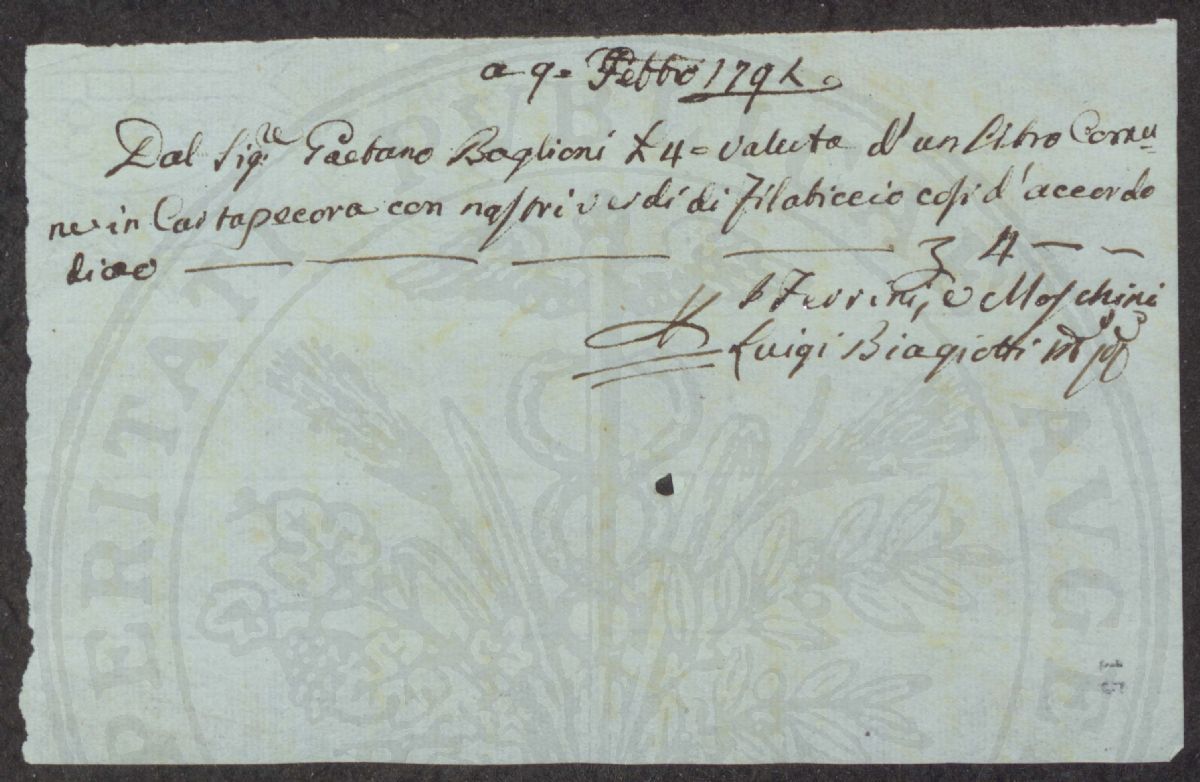 a 9= Febb.o 179
Dal Sig.re Gaetano Baglioni £ 4= valuta d'un Libro Comu=
ne in Cartapecora con nastri verdi di Filaticcio così d'accordo
dico 4
p Ferrini, e Moschini
Luigi Biagiotti
PERITAT PUBLICAM AUGE